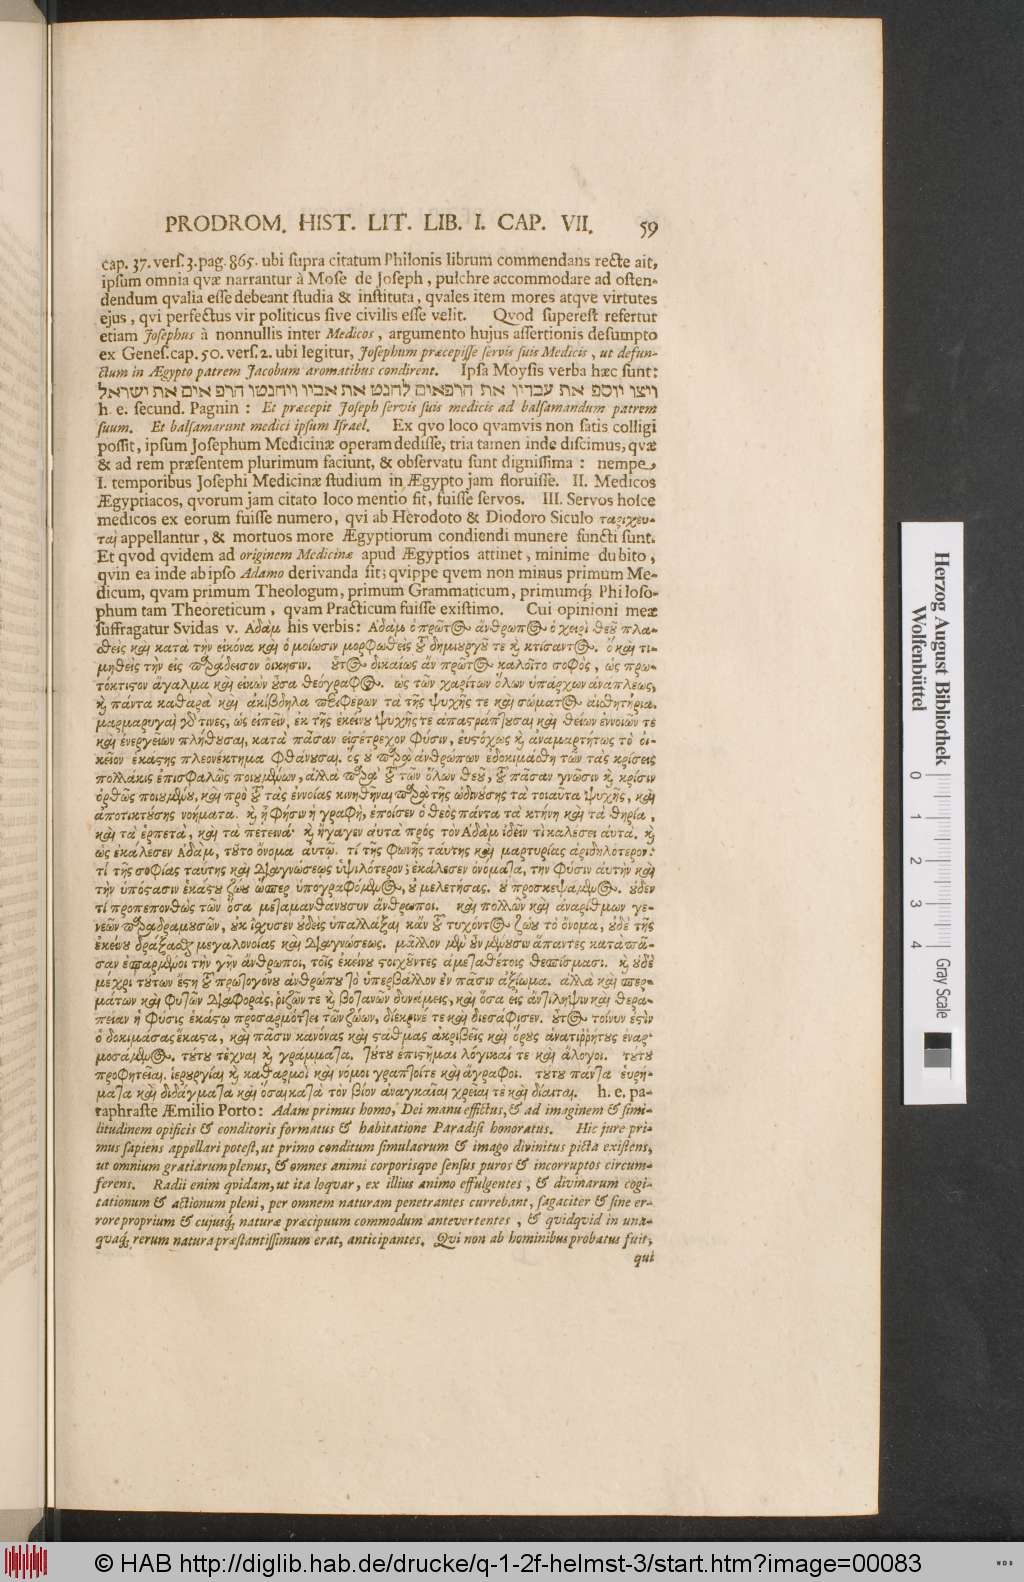 PRODROM. HIST. LIT. LIB. I. CAP. VII. 59
cap. 37. vers. 3. pag. 865. ubi ſupra citatum Philonis librum commendans recte ait,
ipſum omnia qvæ narrantur à Moſe de Joſeph, pulchre accommodare ad oſten-
dendum qvalia eſſe debeant ſtudia & inſtituta, qvales item mores atqve virtutes
ejus, qvi perfectus vir politicus ſive civilis eſſe velit. Qvod ſupereſt refertur
etiam Joſephus à nonnullis inter Medicos, argumento hujus aſſertionis deſumpto
ex Geneſ. cap. 50. verſ. 2. ubi legitur, Joſephum præcepiſſe ſervis ſuis Medicis, ut defun-
ctum in Ægypto patrem Jacobum aromatibus condirent. Ipſa Moyſis verba hæc ſunt:
ויצו יוסף את עבדיו את הרפאים לחנט את אביו ויחנטו הרפ אים את ישראל
h. e. ſecund. Pagnin: Et præcepit Joſeph ſervis ſuis medicis ad balſamandum patrem
ſuum. Et balſamarunt medici ipſum Iſrael. Ex qvo loco qvamvis non ſatis colligi
poſſit, ipſum Joſephum Medicinæ operam dediſſe, tria tamen inde diſcimus, qvæ
& ad rem præſentem plurimum faciunt, & obſervatu ſunt digniſſima: nempe,
I. temporibus Joſephi Medicinæ ſtudium in Ægypto jam floruiſſe. II. Medicos
Ægyptiacos, qvorum jam citato loco mentio fit, fuiſſe ſervos. III. Servos hoſce
medicos ex eorum fuiſſe numero, qvi ab Herodoto & Diodoro Siculo ταριχευ-
ταὶ appellantur, & mortuos more Ægyptiorum condiendi munere functi ſunt.
Et qvod qvidem ad originem Medicinæ apud Ægyptios attinet, minime dubito,
qvin ea inde ab ipſo Adamo derivanda ſit; qvippe qvem non minus primum Me-
dicum, qvam primum Theologum, primum Grammaticum, primumq; Philoſo-
phum tam Theoreticum, qvam Practicum fuiſſe exiſtimo. Cui opinioni meæ
ſuffragatur Svidas v. Ἀδὰμ his verbis: Ἀδὰμ ὁ πρῶτος ἄνθρωπος ὁ χειρὶ θεοῦ πλα-
σθεὶς καὶ κατὰ τὴν εἰκόνα καὶ ὁμοίωσιν μορφωθεὶς τοῦ δημιουργοῦ τε καὶ κτίσαντος. ὁ καὶ τι-
μηθεὶς τὴν εἰς παράδεισον οἴκησιν. οὗτος δικαίως ἂν πρῶτος καλοῖτο σοφὸς, ὡς πρω-
τόκτιστον ἄγαλμα καὶ εἰκὼν οὖσα θεόγραφος. ὡς τῶν χαρίτων ὅλων ὑπάρχων ἀνάπλεως,
καὶ πάντα καθαρὰ καὶ ἀκίβδηλα περιφέρων τὰ τῆς ψυχῆς τε καὶ σώματος αἰσθητήρια.
μαρμαρυγαὶ γάρ τινες, ὡς εἰπεῖν, ἐκ τῆς ἐκείνου ψυχῆς τε ἀπαστράπτουσαι καὶ θείων ἐννοιῶν τε
καὶ ἐνεργειῶν πλήθουσαι, κατὰ πᾶσαν εἰσέτρεχον φύσιν, εὐστόχως καὶ ἀναμαρτήτως τὸ οἰ-
κεῖον ἑκάστης πλεονέκτημα φθάνουσαι. ὃς οὐ παρὰ ἀνθρώπων ἐδοκιμάσθη τῶν τὰς κρίσεις
πολλάκις ἐπισφαλῶς ποιουμένων, ἀλλὰ παρὰ τοῦ τῶν ὅλων θεοῦ, τοῦ πᾶσαν γνῶσιν καὶ κρίσιν
ὀρθῶς ποιουμένου, καὶ πρὸ τοῦ τὰς ἐννοίας κινηθῆναι παρὰ τῆς ὠδινούσης τὰ τοιαῦτα ψυχῆς, καὶ
ἀποτικτούσης νοήματα. καὶ ᾗ φησιν ἡ γραφὴ, ἐποίσεν ὁ θεὸς πάντα τὰ κτήνη καὶ τὰ θηρία,
καὶ τὰ ἑρπετὰ, καὶ τὰ πετεινά· καὶ ἤγαγεν αὐτὰ πρὸς τὸν Ἀδὰμ ἰδεῖν τὶ καλέσει αὐτά. καὶ
ὡς ἐκάλεσεν Ἀδὰμ, τοῦτο ὄνομα αὐτῷ. τί τῆς φωνῆς ταύτης καὶ μαρτυρίας ἀριδηλότερον;
τί τῆς σοφίας ταύτης καὶ διαγνώσεως ὑψιλότερον; ἐκάλεσεν ὀνόματα, τὴν φύσιν αὐτὴν καὶ
τὴν ὑπόστασιν ἑκάστου ζώου ὥσπερ ὑπογραφόμενος, οὐ μελετήσας. οὐ προσκεψάμενος. οὐδέν
τί προπεπονθὼς τῶν ὅσα μεταμανθάνουσιν ἄνθρωποι. καὶ πολλῶν καὶ ἀναρίθμων γε-
νεῶν παραδραμουσῶν, οὐκ ἴσχυσεν οὐδεὶς ὑπαλλάξαι κἂν τοῦ τυχόντος ζώου τὸ ὄνομα, οὐδὲ τῆς
ἐκείνου δράξασθαι μεγαλονοίας καὶ διαγνώσεως. μᾶλλον μὲν οὖν μένουσιν ἅπαντες κατὰ πᾶ-
σαν ἐσπαρμένοι τὴν γῆν ἄνθρωποι, τοῖς ἐκείνου στοιχοῦντες ἀμεταθέτοις θεσπίσμασι. καὶ οὐδὲ
μέχρι τούτων ἔστη τοῦ πρωτογόνου ἀνθρώπου τὸ ὑπερβάλλον ἐν πᾶσιν ἀξίωμα. ἀλλὰ καὶ σπερ-
μάτων καὶ φυτῶν διαφορὰς, ῥιζῶν τε καὶ βοτανῶν δυνάμεις, καὶ ὅσα εἰς ἀντίληψιν καὶ θερα-
πείαν ἡ φύσις ἑκάστῳ προσαρμόττει τῶν ζώων, διέκρινέ τε καὶ διεσάφισεν. οὗτος τοίνυν ἐστὶν
ὁ δοκιμάσας ἕκαστα, καὶ πᾶσιν κανόνας καὶ στάθμας ἀκριβεῖς καὶ ὅρους ἀναντιῤῥήτους ἐναρ-
μοσάμενος. τούτου τέχναι καὶ γράμματα. τούτου ἐπιστῆμαι λογικαί τε καὶ ἄλογοι. τούτου
προφητεῖαι. ἱερουργίαι καὶ καθαρμοὶ καὶ νόμοι γραπτοίτε καὶ ἄγραφοι. τούτου πάντα εὑρή-
ματα καὶ διδάγματα καὶ ὅσαι κατὰ τὸν βίον ἀναγκαῖαι χρεῖαι τὲ καὶ δίαιται. h. e. pa-
raphraſte Æmilio Porto: Adam primus homo, Dei manu effictus, & ad imaginem & ſimi-
litudinem opificis & conditoris formatus & habitatione Paradiſi honoratus. Hic jure pri-
mus ſapiens appellari poteſt, ut primo conditum ſimulacrum & imago divinitus picta exiſtens,
ut omnium gratiarum plenus, & omnes animi corporisqve ſenſus puros & incorruptos circum-
ferens. Radii enim qvidam, ut ita loqvar, ex illius animo effulgentes, & divinarum cogi-
tationum & actionum pleni, per omnem naturam penetrantes currebant, ſagaciter & ſine er-
rore proprium & cujusq; naturæ præcipuum commodum antevertentes, & qvidqvid in una-
quaq; rerum natura præſtantiſſimum erat, anticipantes. Qvi non ab hominibus probatus fuit,
qui
Herzog August Bibliothek
Wolfenbüttel
0 1 2 3 4 Gray Scale
© HAB http://diglib.hab.de/drucke/q-1-2f-helmst-3/start.htm?image=00083